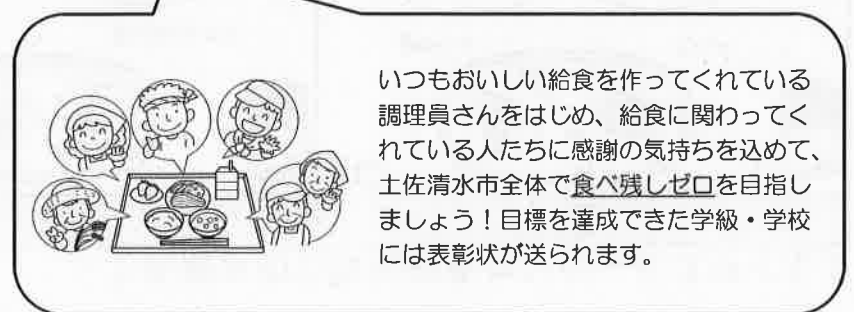 いつもおいしい給食を作ってくれている
調理員さんをはじめ、給食に関わってく
れている人たちに感謝の気持ちを込めて、
土佐清水市全体で食べ残しゼロを目指し
ましょう！目標を達成できた学級・学校
には表彰状が送られます。